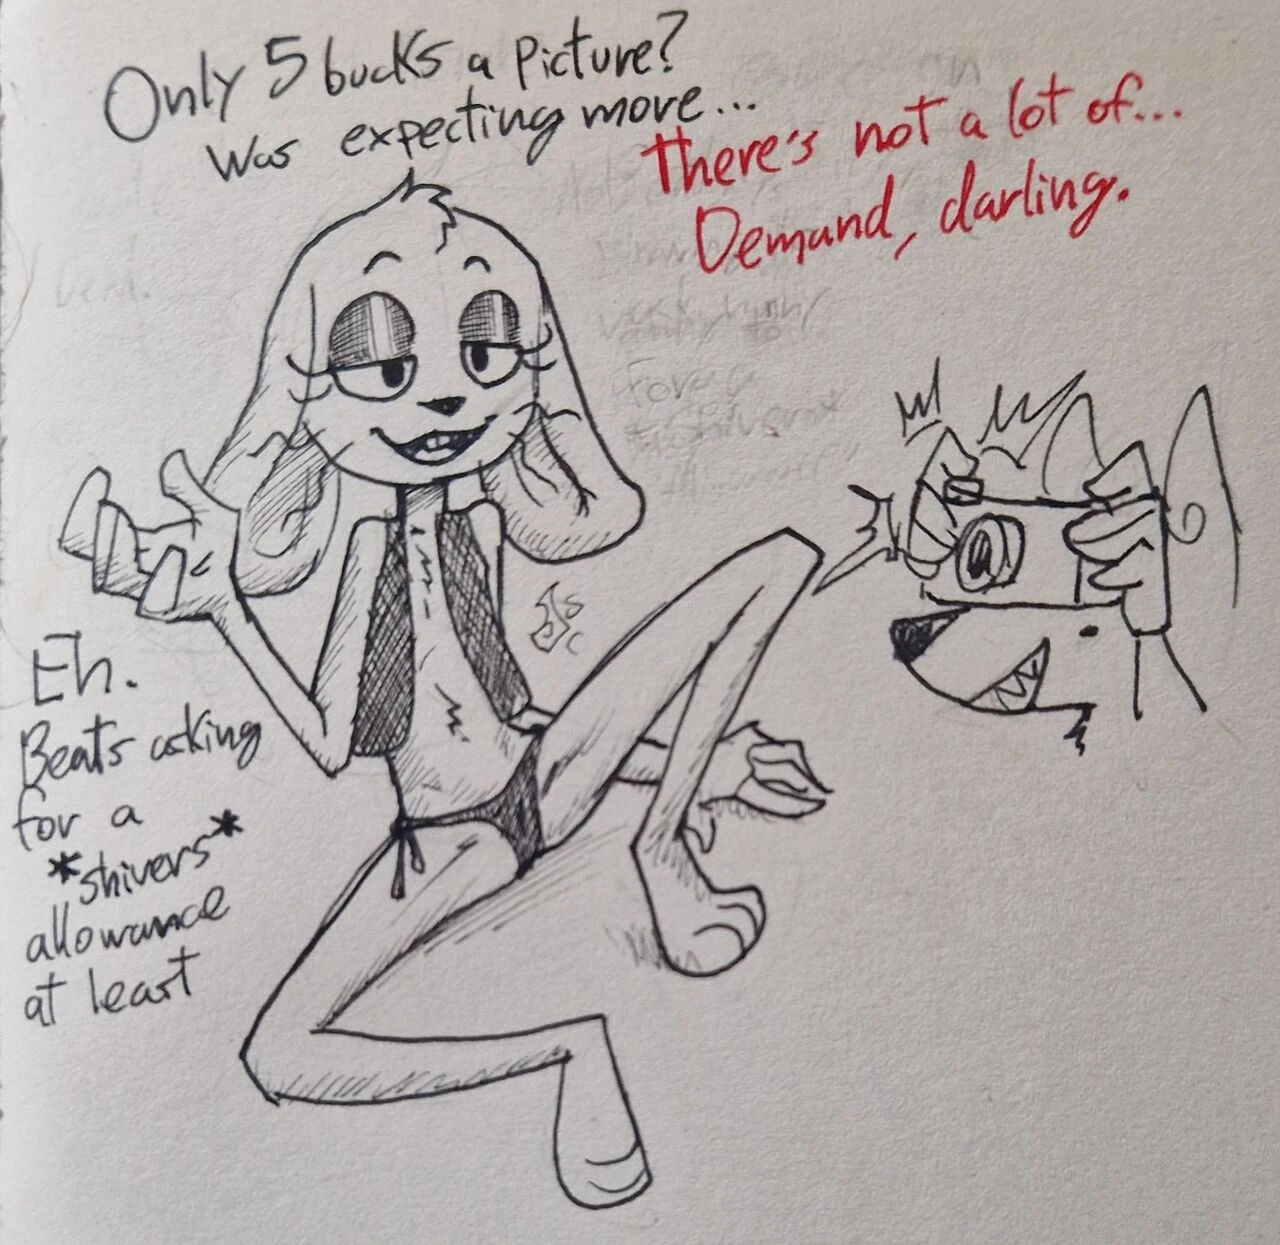 Only 5 bucks a picture?
Was expecting more...
There's not a lot of...
Demand, darling.
Eh.
Beats asking
for a
*shivers*
allowance
at least